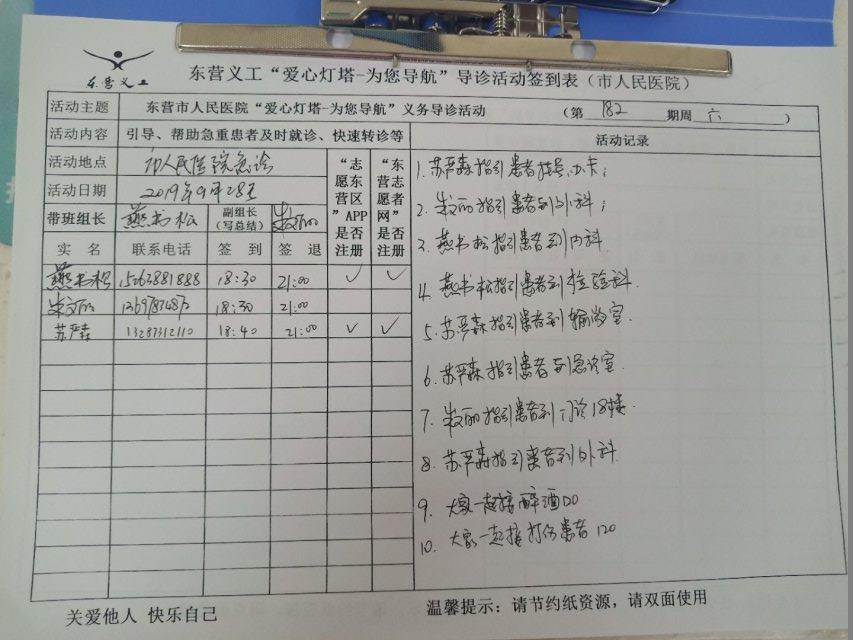 东营义工
东营义工“爱心灯塔-为您导航”导诊活动签到表（市人民医院）
活动主题 东营市人民医院“爱心灯塔-为您导航”义务导诊活动 （第 182 期周 六 ）
活动内容 引导、帮助急重患者及时就诊、快速转诊等
活动地点 市人民医院急诊
活动日期 2019年9月28日
带班组长 燕书松 副组长（写总结） 朱文丽
“志愿东营区”APP是否注册
“东营志愿者网”是否注册
实名 联系电话 签到 签退
燕书松 15263881888 18:30 21:00 ✓ ✓
朱文丽 18:30 21:00
苏严森 13287312110 18:40 21:00 ✓ ✓
活动记录
1. 苏严森指引患者挂号、办卡；
2. 朱文丽指引患者到外科；
3. 燕书松指引患者到内科
4. 燕书松指引患者到检验科
5. 苏严森指引患者到输液室
6. 苏严森指引患者到急诊室
7. 朱文丽指引患者到门诊18楼
8. 苏严森指引患者到外科
9. 大家一起接醉酒120
10. 大家一起接打伤患者120
关爱他人 快乐自己
温馨提示：请节约纸资源，请双面使用